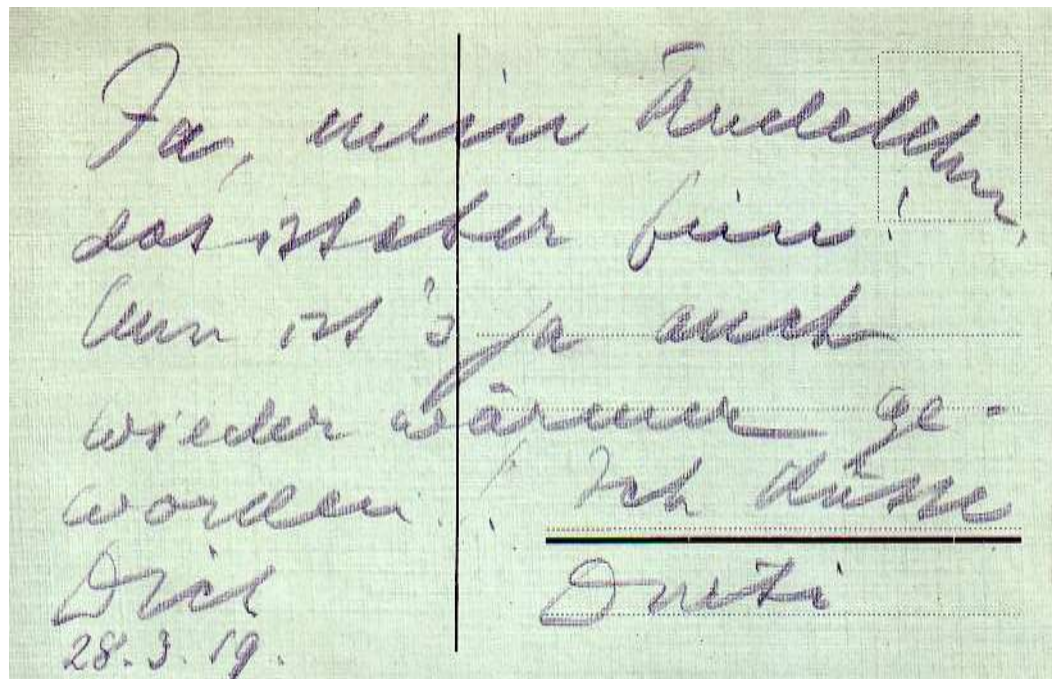 Ja, mein
das ist aber fein!
Nun ist's ja auch
wieder wärmer ge-
worden. Ich küsse
Dich
28.3.19.